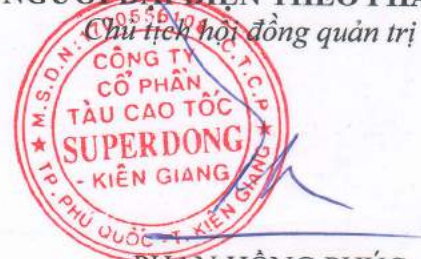 NGƯỜI ĐẠI DIỆN THEO PHÁ
Chủ tịch hội đồng quản trị
M.S.D.N: C.T.C.P
CÔNG TY
CỔ PHẦN
TÀU CAO TỐC
SUPERDONG
- KIÊN GIANG
TP. PHÚ QUỐC - T. KIÊN GIANG